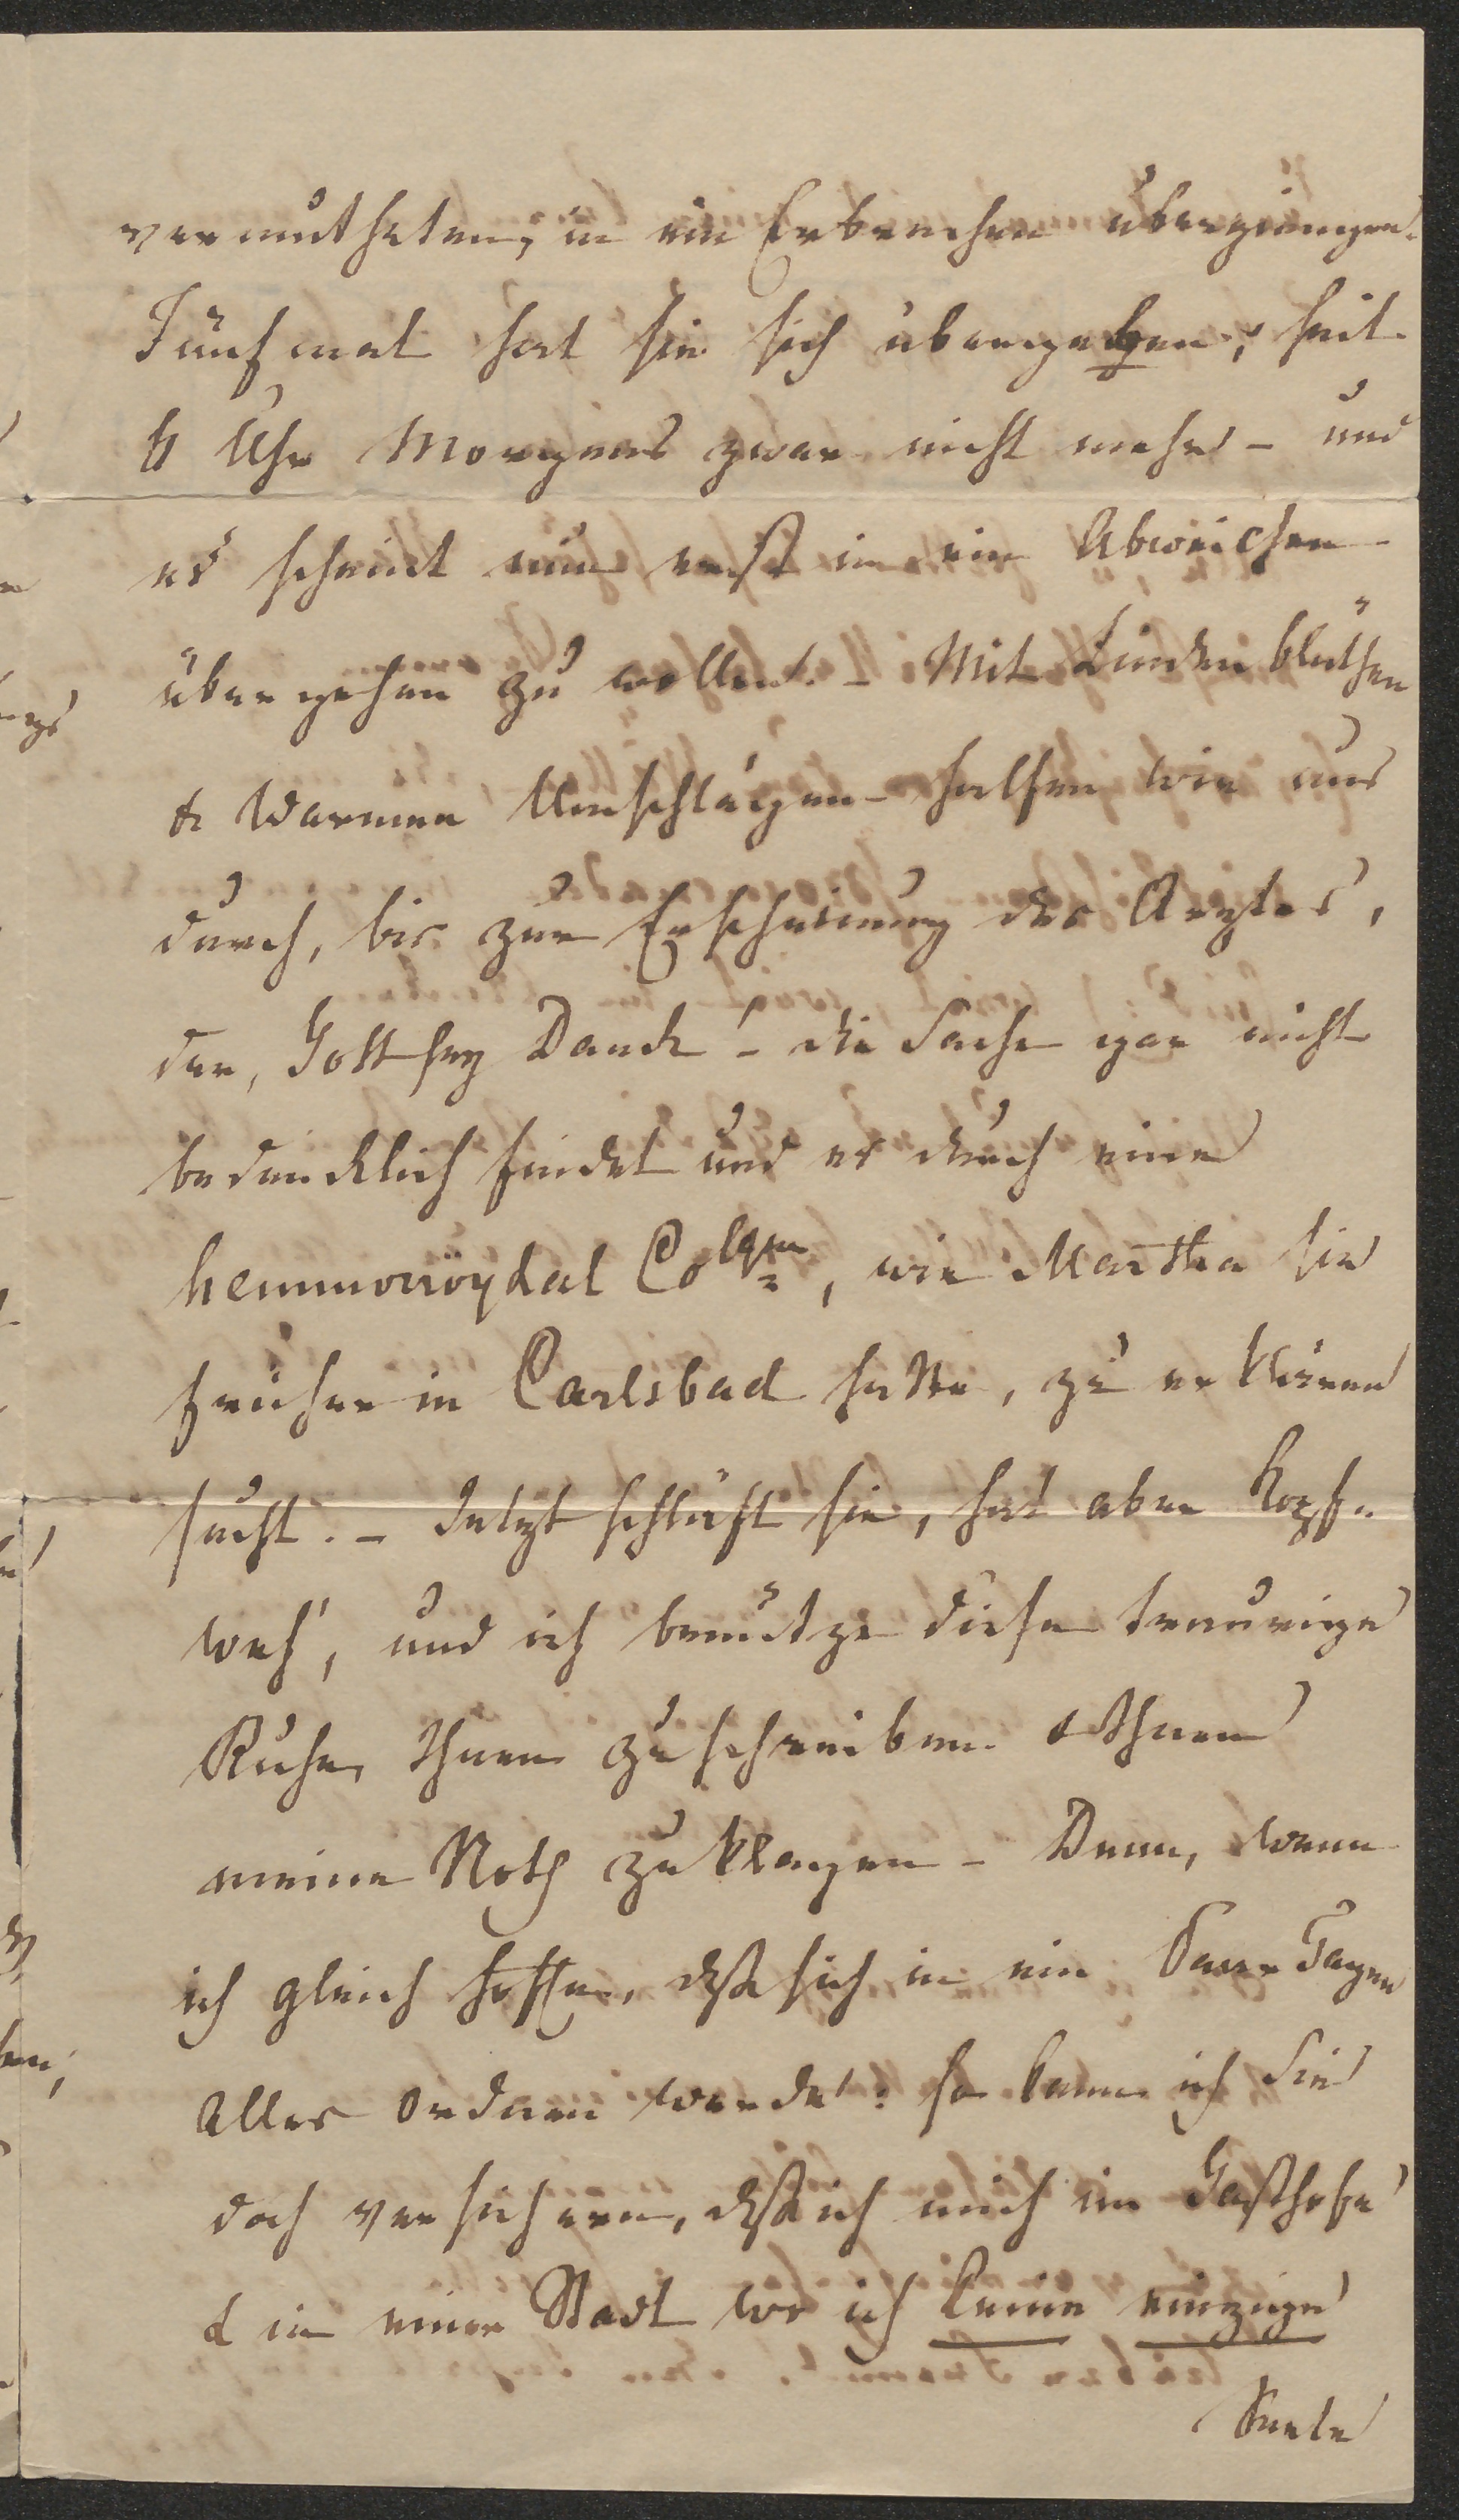 vermutheten, in ein Erbrechen übergingen.
Fünfmal hat sie sich übergeben; seit
6 Uhr Morgens zwar nicht mehr – und
es scheint nun erst in ein Abweichen
übergehen zu wollen. – Mit Lindenblüthen
& warmen Umschlägen – halfen wir uns
durch, bis zur Erscheinung des Arztes,
der, Gott sey Danck – die Sache gar nicht
bedencklich findet und es durch eine
hemmorröydal , wie Martha sie
früher in Carlsbad hatte, zu erklären
sucht. – Jetzt schläft sie, hat aber Kopf-
weh, und ich benütze diese traurige
Ruhe, Ihnen zu schreiben & Ihnen
meine Noth zu klagen – Denn, wenn
ich gleich hoffe, daß sich in ein Paar Tagen
Alles ordnen werde: so kann ich Sie
doch versichern, daß ich mich im Gasthofe
& in einer Stadt wo ich keine einzige
Seele